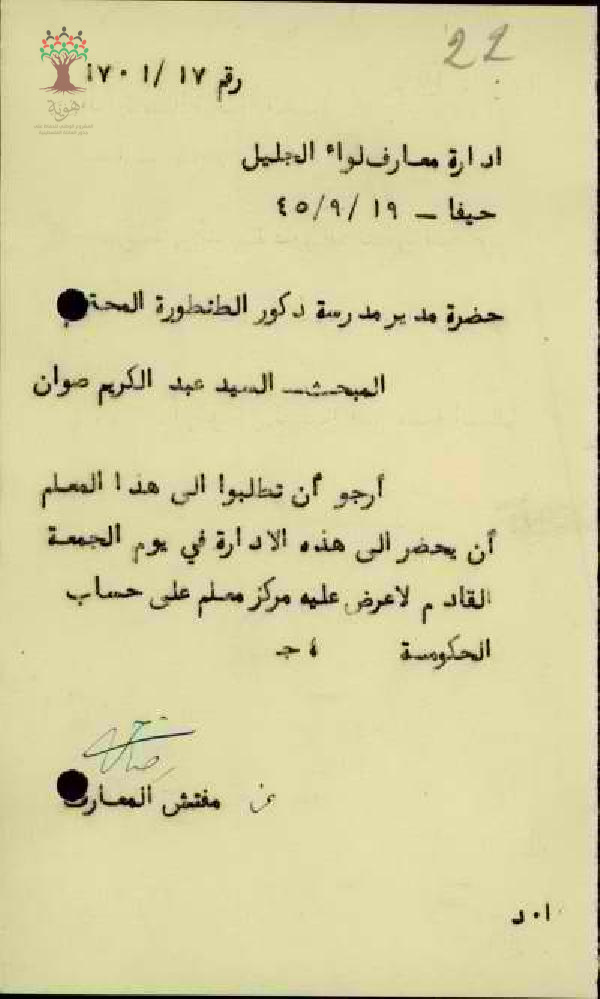 22
هوية
رقم ١٧ /١ ١٧٠
ادارة معارف لواء الجليل
حيفا - ١٩ /٤٥/٩
حضرة مدير مدرسة دكور الطنطورة المحت
المبحث السيد عبد الكريم صوان
أرجو أن تطالبوا الى هذا المعلم
أن يحضر الى هذه الادارة في يوم الجمعة
القادم لاعرض عليه مركز معلم على حساب
الحكومة ٤ جـ
عن مفتش المعارف
ا٠ د